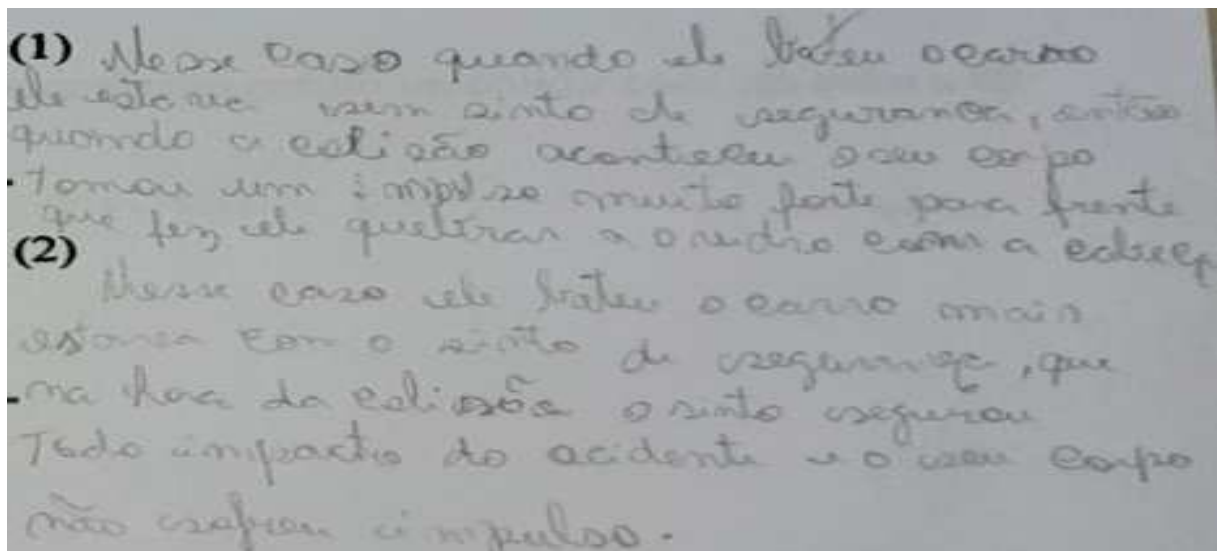 (1) Nesse caso quando ele bateu o carro
ele estava sem sinto de segurança, então
quando a colisão aconteceu o seu corpo
tomou um impulso muito forte para frente
que fez ele quebrar o vidro com a cabeça
(2)
Nesse caso ele bateu o carro mais
estava com o sinto de segurança, que
na hora da colisão o sinto segurou
Todo impacto do acidente e o seu corpo
não sofreu impulso.